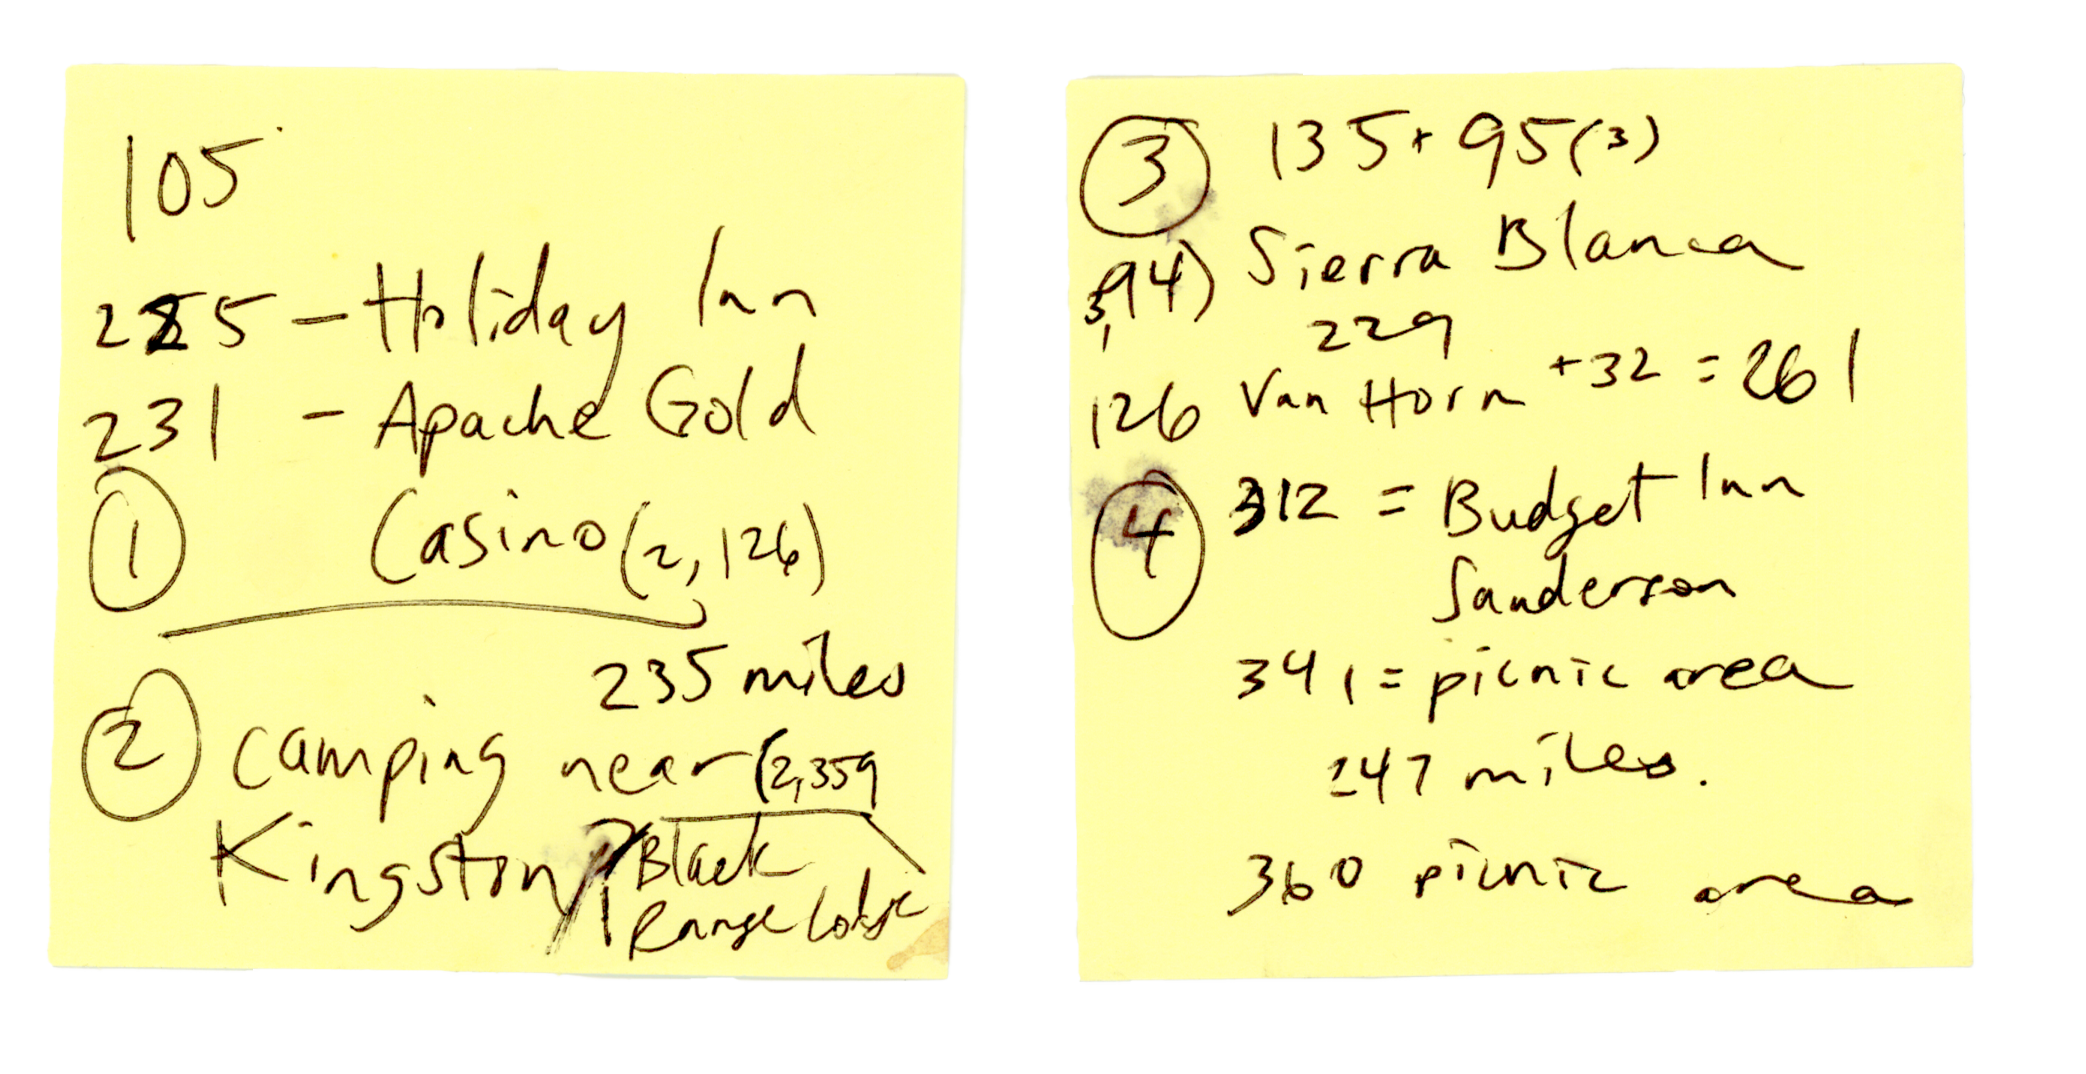 105
225 – Holiday Inn
231 – Apache Gold
① Casino (2,126)
235 miles
② camping near (2,359
Kingston / Black
Range Lodge
③ 135 + 95 (3)
94) Sierra Blanca
3, 229
126 Van Horn +32 = 261
④ 312 = Budget Inn
Sanderson
341 = picnic area
247 miles.
360 picnic area